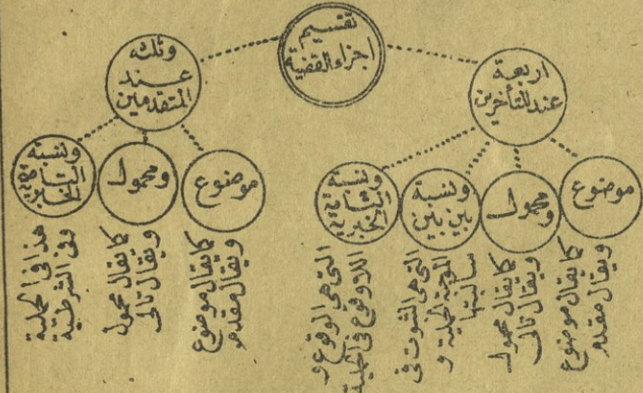 تقسيم
اجزاء القضية
اربعة
عند المتأخرين
وثلثه
عند
المتقدمين
موضوع
و محمول
ونسبة
بين بين
ونسبة
التامة
الخبرية
موضوع
ومحمول
ونسبة
التامة
الخبرية
كما يقال موضوع
ويقال مقدم
كما يقال محمول
ويقال تالى
التى هى الثبوت فى
الموجبة الحملية و
سالبتها
التى هى الوقوع و
اللاوقوع فى الحملية
كما يقال موضوع
ويقال مقدم
كما يقال محمول
ويقال تالى
هذا فى الحملية
وفى الشرطية